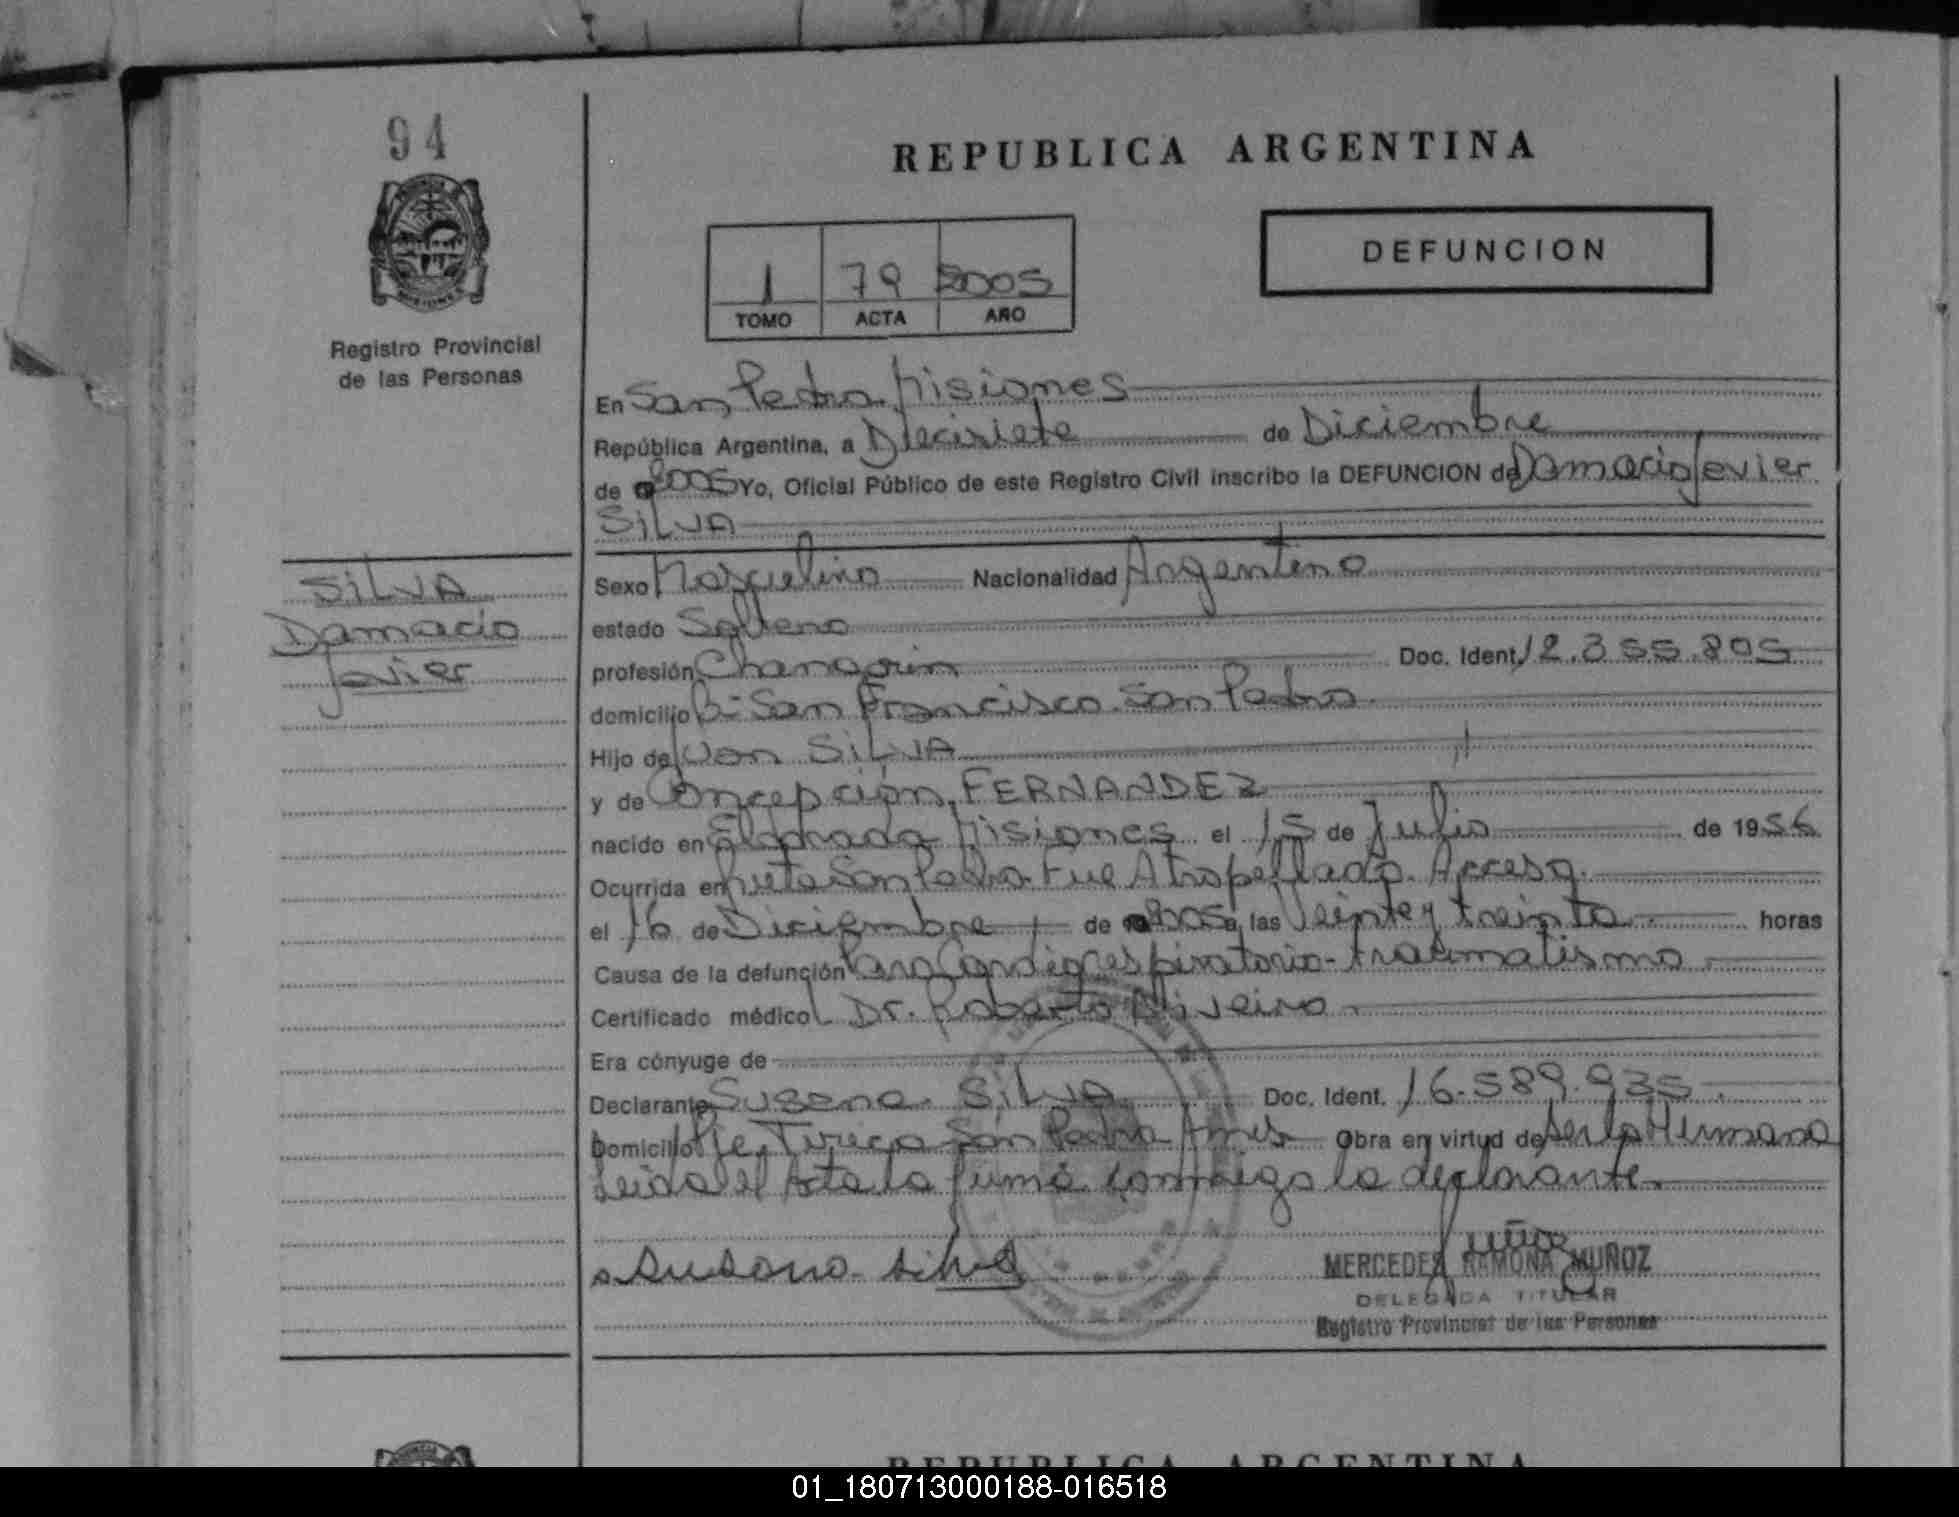 94
REPUBLICA ARGENTINA
DEFUNCION
1 79 2005
TOMO ACTA AÑO
Registro Provincial
de las Personas
En San Pedro Misiones
República Argentina, a Diecisiete de Diciembre
de 2005 Yo, Oficial Público de este Registro Civil inscribo la DEFUNCION de Damacio Javier
SILVA
SILVA
Damacio
Javier
Sexo Masculino Nacionalidad Argentino
estado Soltero
profesión Changarin Doc. Ident. 12.355.805
domicilio Bº San Francisco San Pedro
Hijo de Juan SILVA
y de Concepción FERNANDEZ
nacido en Eldorado Misiones el 15 de Julio de 1956
Ocurrida en San Pedro Fue Atropellado Acceso
el 16 de Diciembre de 2005 a las Veinte y treinta horas
Causa de la defunción Paro Cardiorespiratorio - traumatismo
Certificado médico Dr. Roberto
Era cónyuge de
Declarante Susana SILVA Doc. Ident. 16.589.935
Domicilio San Pedro Obra en virtud de ser la Hermana
Leida el Acta la firma conmigo la declarante
Susana Silva
MERCEDES RAMONA MUÑOZ
DELEGADA TITULAR
Registro Provincial de las Personas
REPUBLICA ARGENTINA
01_180713000188-016518